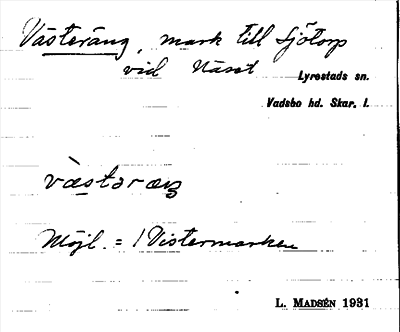 Västeräng, mark till Sjötorp
vid Näset
Lyrestads sn.
Vadsbo hd. Skar. l.
Möjl. = / Vistermarken
L. MADSÉN 1931